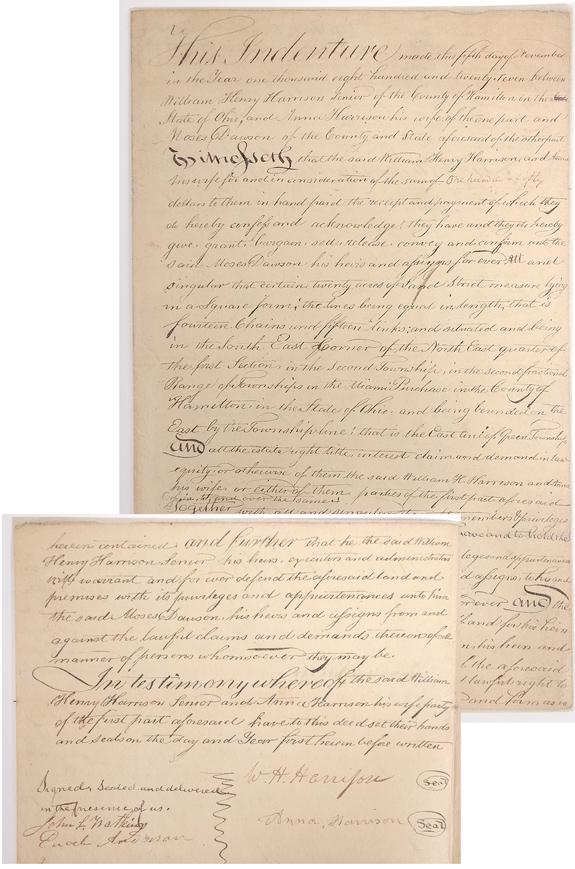 This Indenture, made this fifth day of November
in the Year one thousand eight hundred and twenty seven between
William Henry Harrison Senior of the County of Hamilton in the
State of Ohio, and Anna Harrison his wife of the one part and
Moses Dawson of the County and State aforesaid of the other part
Witnesseth, that the said William Henry Harrison, and Anna
his wife for and in consideration of the sum of
dollars to them in hand paid the receipt and payment of which they
do hereby confess and acknowledge, they have and they do hereby
give, grant, bargain, sell, release, convey and confirm unto the
said Moses Dawson his heirs and assigns for ever. All and
singular that certain twenty acres of Land Strict measure lying
in a Square form; the lines being equal in length, that is
fourteen Chains and fifteen links; and situated and being
in the South East Corner of the North East quarter of
the first Section, in the Second Township, in the second fractional
Range of Townships in the Miami Purchase in the County of
Hamilton, in the State of Ohio, and being bounded on the
East by the Township line; that is the East line of Green Township,
and all the estate right title, interest claim and demand in law
equity or otherwise of them the said William H Harrison and Anna
his wife or either of them parties of the first part aforesaid
of in to and over the same;
Together with all and singular the
privileges
have and to hold the
leges and appurtenances
d assigns to his and
r ever and the
Land for his heirs
his heirs and
the aforesaid
lawful right to
and form as is
herein contained and further that he the said William
Henry Harrison Senior his heirs, executors and administrators
will warrant and for ever defend the aforesaid land and
premises with its privileges and appurtenances unto him
the said Moses Dawson, his heirs and assigns from and
against the lawful claims and demands thereon of all
manner of persons whomsoever they may be.
In testimony whereof, the said William
Henry Harrison Senior and Anna Harrison his wife party
of the first part aforesaid have to this deed set their hands
and seals on the day and Year first herein before written
Signed, Sealed and delivered
in the presence of us.
John L Watkins
Enoch Anderson
W. H. Harrison
Seal
Anna Harrison
Seal